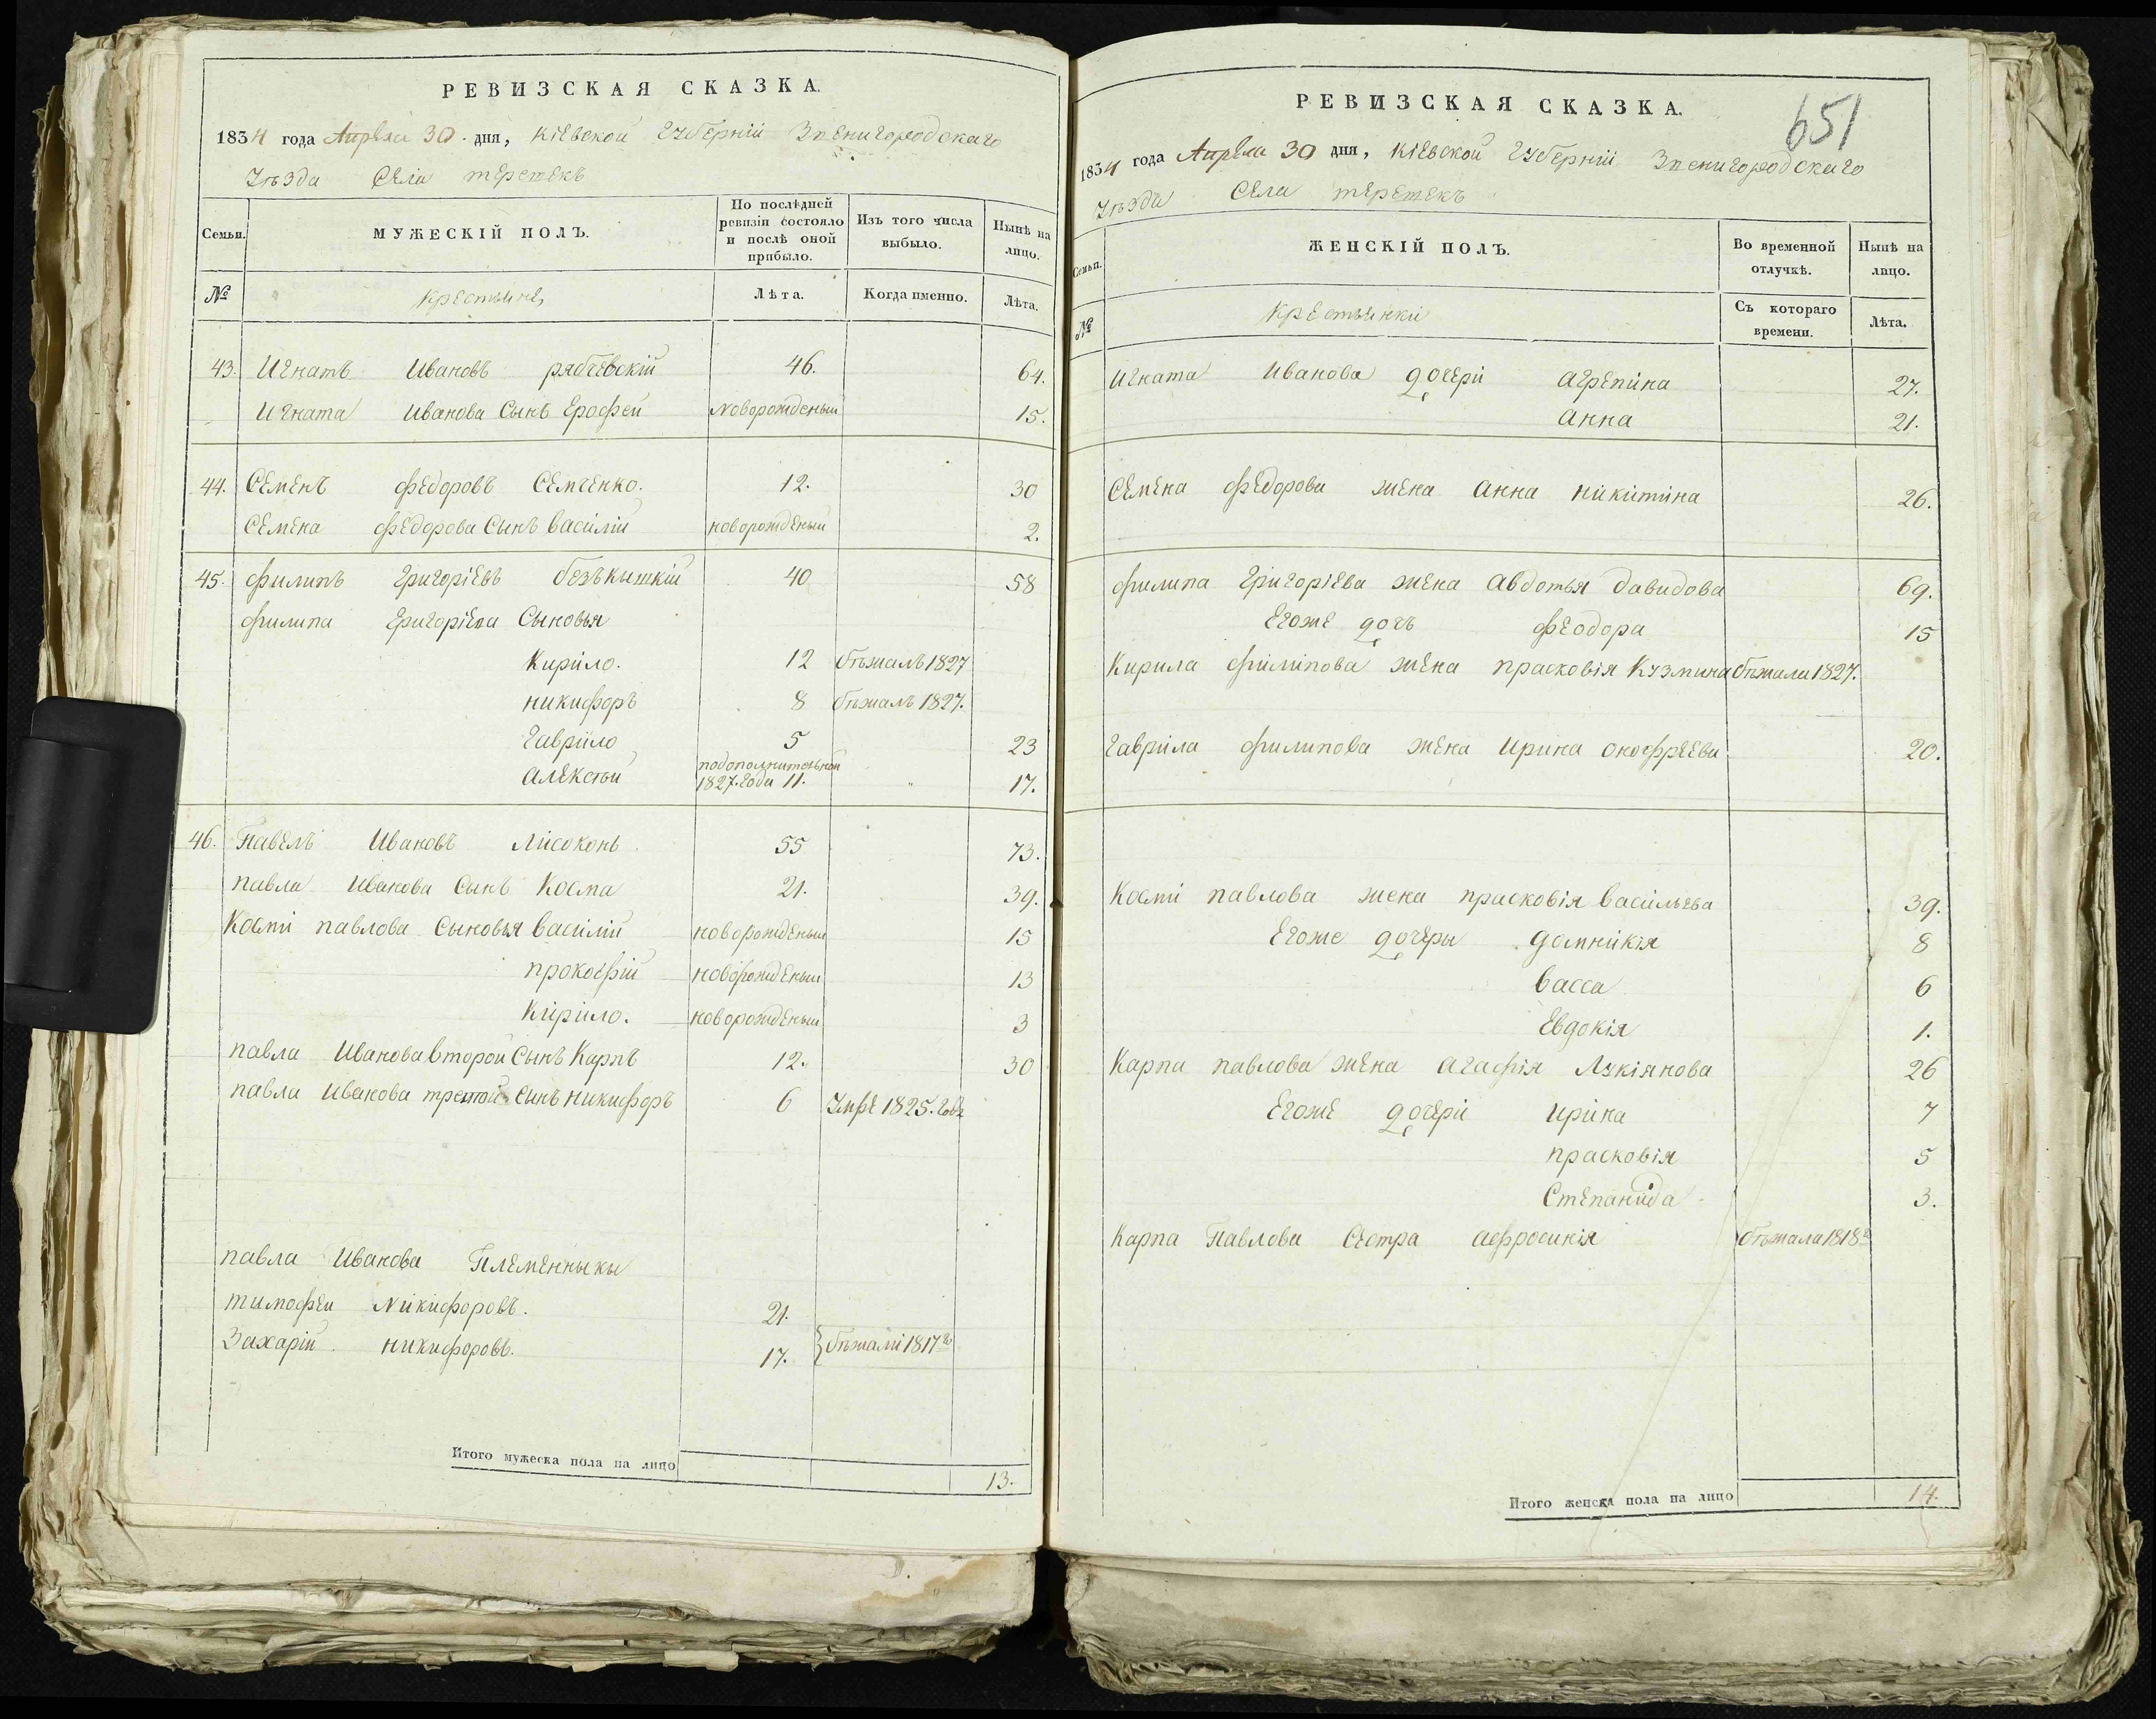 РЕВИЗСКАЯ СКАЗКА.
1834 года Апреля 30 дня, Кіевской Губерніи Звенигородскаго
Уѣзда Села терешекъ
Семьи. МУЖЕСКІЙ ПОЛЪ. По послѣдней ревизіи состояло и послѣ оной прибыло. Изъ того числа выбыло. Нынѣ на лицо.
№ Крестьяне Лѣта. Когда именно. Лѣта.
43. Игнатъ Ивановъ рябчевскій 46. 64.
Игната Иванова Сынъ Ерофей новорожденыи 15.
44. Семенъ федоровъ Семченко. 12. 30
Семена федорова Сынъ василій новорожденыи 2.
45. филипъ григоріевъ безъкышкій 40 58
филипа григоріева Сыновья
Кирило. 12 бѣжалъ 1827
никифоръ 8 бѣжалъ 1827.
гаврило 5 23
алексѣй подополнителнои 1827. года 11. 17.
46. Павелъ Ивановъ Лисоконь 55 73.
павла Иванова Сынъ Косма 21. 39.
Косми павлова Сыновья василій новорожденыи 15
прокофій новорожденыи 13
Кирило. новорожденыи 3
павла Иванова второй Сынъ Карпъ 12. 30
павла Иванова третой Сынъ никифоръ 6 Умре 1825. года
павла Иванова Племенныкы
тимофеи Никифоровъ. 21.
Захарій никифоровъ. 17. } бѣжали 1817 го
Итого мужеска пола на лицо 13.
651
РЕВИЗСКАЯ СКАЗКА.
1834 года Апреля 30 дня, Кіевской Губерніи Звенигородскаго
Уѣзда Села терешекъ
Семьи. ЖЕНСКІЙ ПОЛЪ. Во временной отлучкѣ. Нынѣ на лицо.
№ Крестьянки Съ котораго времени. Лѣта.
Игната Иванова дочери агрепина 27.
анна 21.
Семена федорова жена анна никитина 26.
филипа григоріева жена авдотья давидова 69.
Егоже дочь феодора 15
Кирила филипова жена прасковія Кузмина бѣжала 1827.
гаврила филипова жена Ирина онофреева 20.
Косми павлова жена прасковія васильева 39.
Егоже дочеры домникія 8
васса 6
Евдокія 1.
Карпа павлова жена агафія Лукіянова 26
Егоже дочери ирина 7
прасковія 5
Степанида 3.
Карпа Павлова Сестра афросинія бѣжала 1818 г
Итого женска пола на лицо 14.